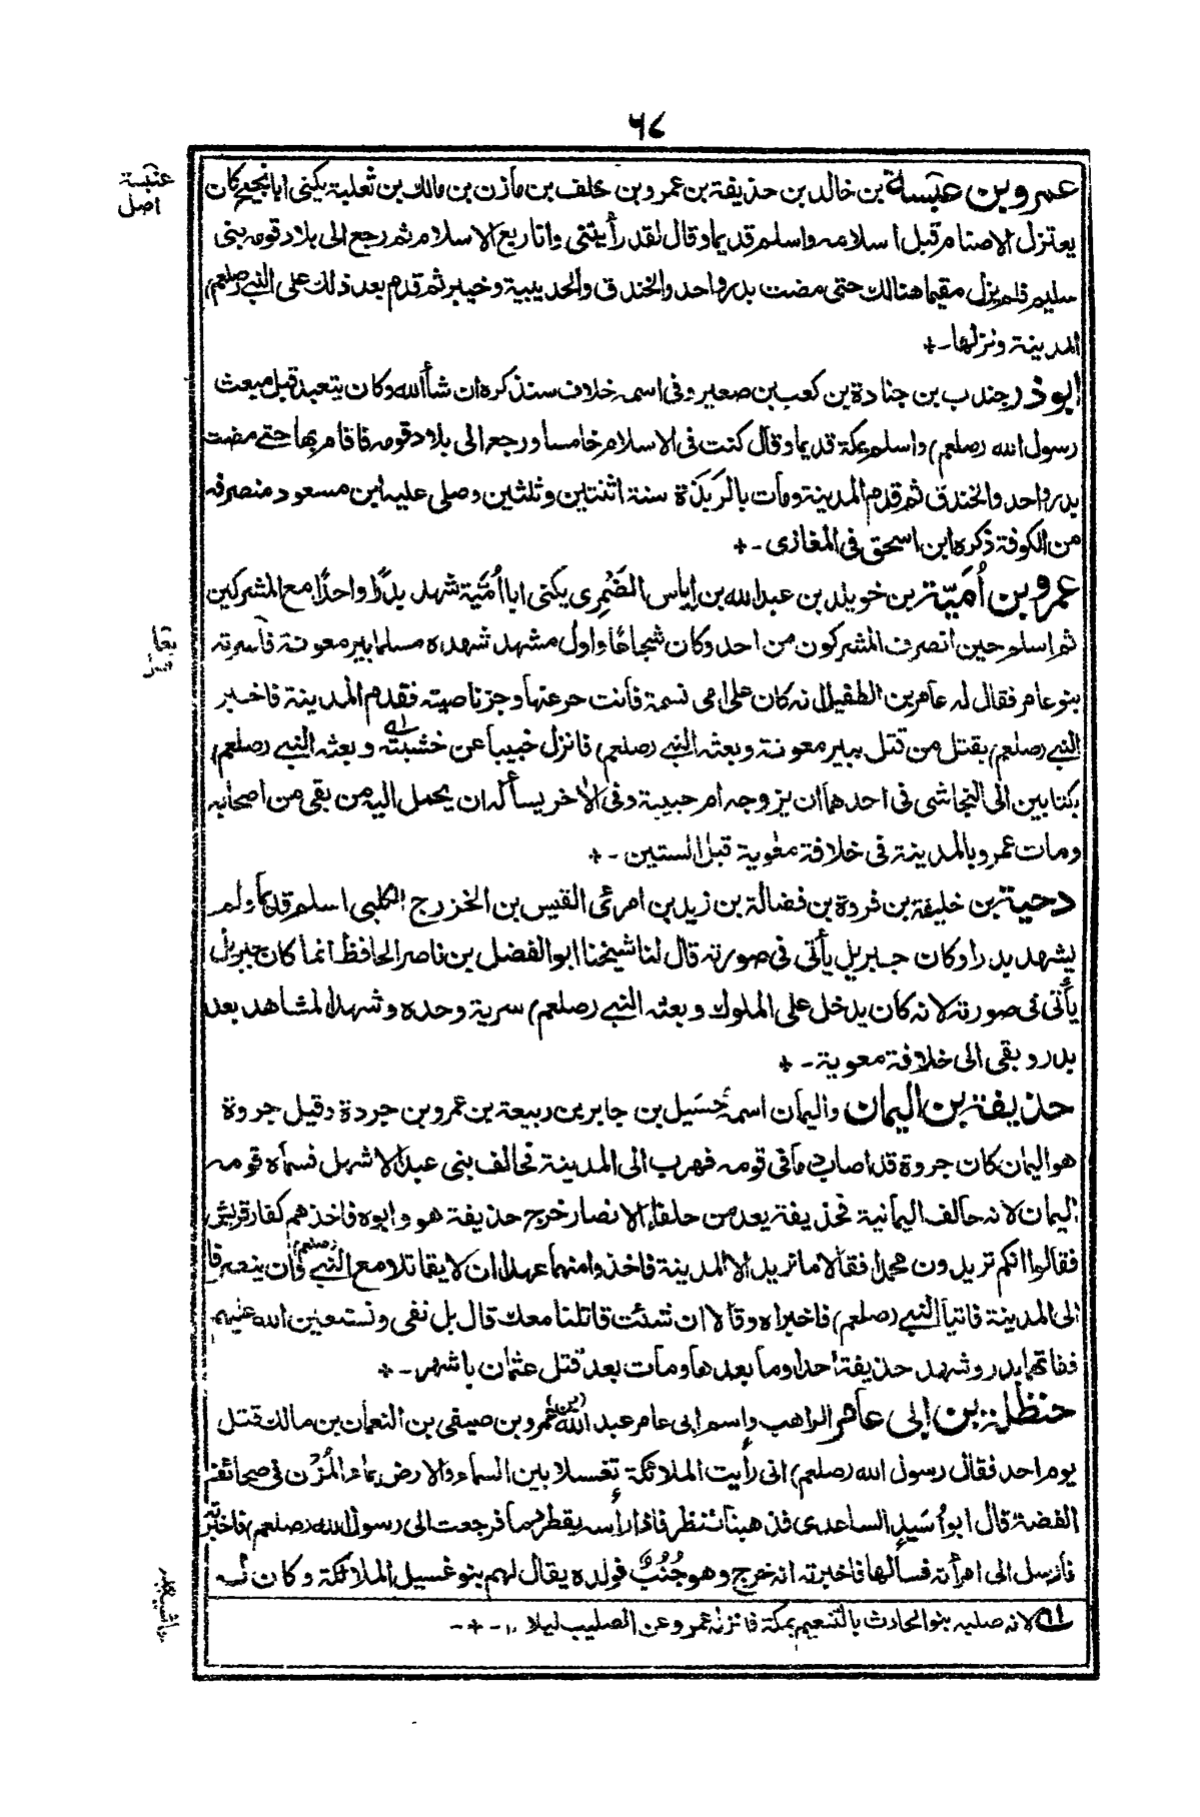 ٦٧
عنبسة
اصل
عمرو بن عبسة بن خالد بن حذيفة بن عمرو بن خلف بن مازن بن مالك بن ثعلبة يكنى ابا نجيح كان
يعتزل الاصنام قبل اسلامه واسلم قديما وقال لقد رأيتنى وانا ربع الاسلام ثم رجع الى بلاد قومه بنى
سليم فلم يزل مقيما هنالك حتى مضت بدر واحد والخندق والحديبية وخيبر ثم قدم بعد ذلك على النبى (صلعم)
المدينة ونزلها ـ+
ابو ذر جندب بن جنادة بن كعب بن صعير وفى اسمه خلاف سنذكره ان شأ الله وكان يتعبد قبل مبعث
رسول الله (صلعم) واسلم بمكة قديما وقال كنت فى الاسلام خامسا ورجع الى بلاد قومه فاقام بها حتى مضت
بدر واحد والخندق ثم قدم المدينة ومات بالرَبَذَة سنة اثنتين وثلثين وصلى عليه ابن مسعود منصرفه
من الكوفة ذكره ابن اسحق فى المغازى ـ+
عمرو بن اُمَيّة بن خويلد بن عبد الله بن اِياس الضَمُرِى يكنى ابا اُمَّيَة شهد بدرًا واحدًا مع المشركين
ثم اسلم حين انصرف المشركون من احد وكان شجاعًا واول مشهد شهده مسلما بير معونة فأسرته
بنو عامر فقال له عامر بن الطفيل انه كان على امى نسمة فأنت حر عنها وجز ناصيته فقدم المدينة فاخبر
النبى (صلعم) بقتل من قتل ببير معونة وبعثه النبى (صلعم) فانزل خبيبا عن خشبته وبعثه النبى (صلعم)
بكتابين الى النجاشى فى احدهما ان يزوجه ام حبيبة وفى الاٰخر يسأله ان يحمل اليه من بقى من اصحابه
ومات عمرو بالمدينة فى خلافة معٰوية قبل الستين ـ+
دحية بن خليفة بن فروة بن فضالة بن زيد بن امرئى القيس بن الخزرج الكلبى اسلم قديما ولم
يشهد بدرا وكان جبريل يأتى فى صورته قال لنا شيخنا ابو الفضل بن ناصر الحافظ انما كان جبريل
يأتى فى صورته لانه كان يدخل على الملوك وبعثه النبى (صلعم) سرية وحده وشهد المشاهد بعد
بدر وبقى الى خلافة معوية ـ+
حذيفة بن اليمان واليمان اسمه حُسَيل بن جابر بن ربيعة بن عمرو بن جردة وقيل جروة
هو اليمان كان جروة قد اصاب دما فى قومه فهرب الى المدينة فحالف بنى عبد الاشهل فسماه قومه
اليمان لانه حالف اليمانية فحذيفة يعد من حلفاء الانصار خرج حذيفة هو وابوه فاخذهم كفار قريش
فقالوا انكم تريدون محمدا فقالا ما نريد الا المدينة فاخذوا منهما عهدا ان لا يقاتلا مع النبى (صلعم) وان ينصرفا
الى المدينة فاتيا النبى (صلعم) فاخبراه وقالا ان شئت قاتلنا معك قال بل نفى ونستعين الله عليهم
ففاتهما بدر وشهد حذيفة احدا وما بعدها ومات بعد قتل عثمان باشهر ـ+
حنظلة بن ابى عامر الراهب واسم ابى عامر عبد الله (بن) عمرو بن صيفى بن النعمان بن مالك قتل
يوم احد فقال رسول الله (صلعم) انى رأيت الملائكة تغسله بين السماء والارض بماء المُزْن فى صحائف
الفضة قال ابو اُسَيد الساعدى فذهبنا ننظر فاذا رأسه يقطر دما فرجعت الى رسول الله (صلعم) فاخبرته
فأرسل الى امرأته فسألها فاخبرته انه خرج وهو جُنُبٌ فولده يقال لهم بنو غسيل الملائكة وكان لـه
لانه صلبه بنو الحادث بالتنعيم بمكة فانزله عمرو عن الصليب ليلا ـ+ـ